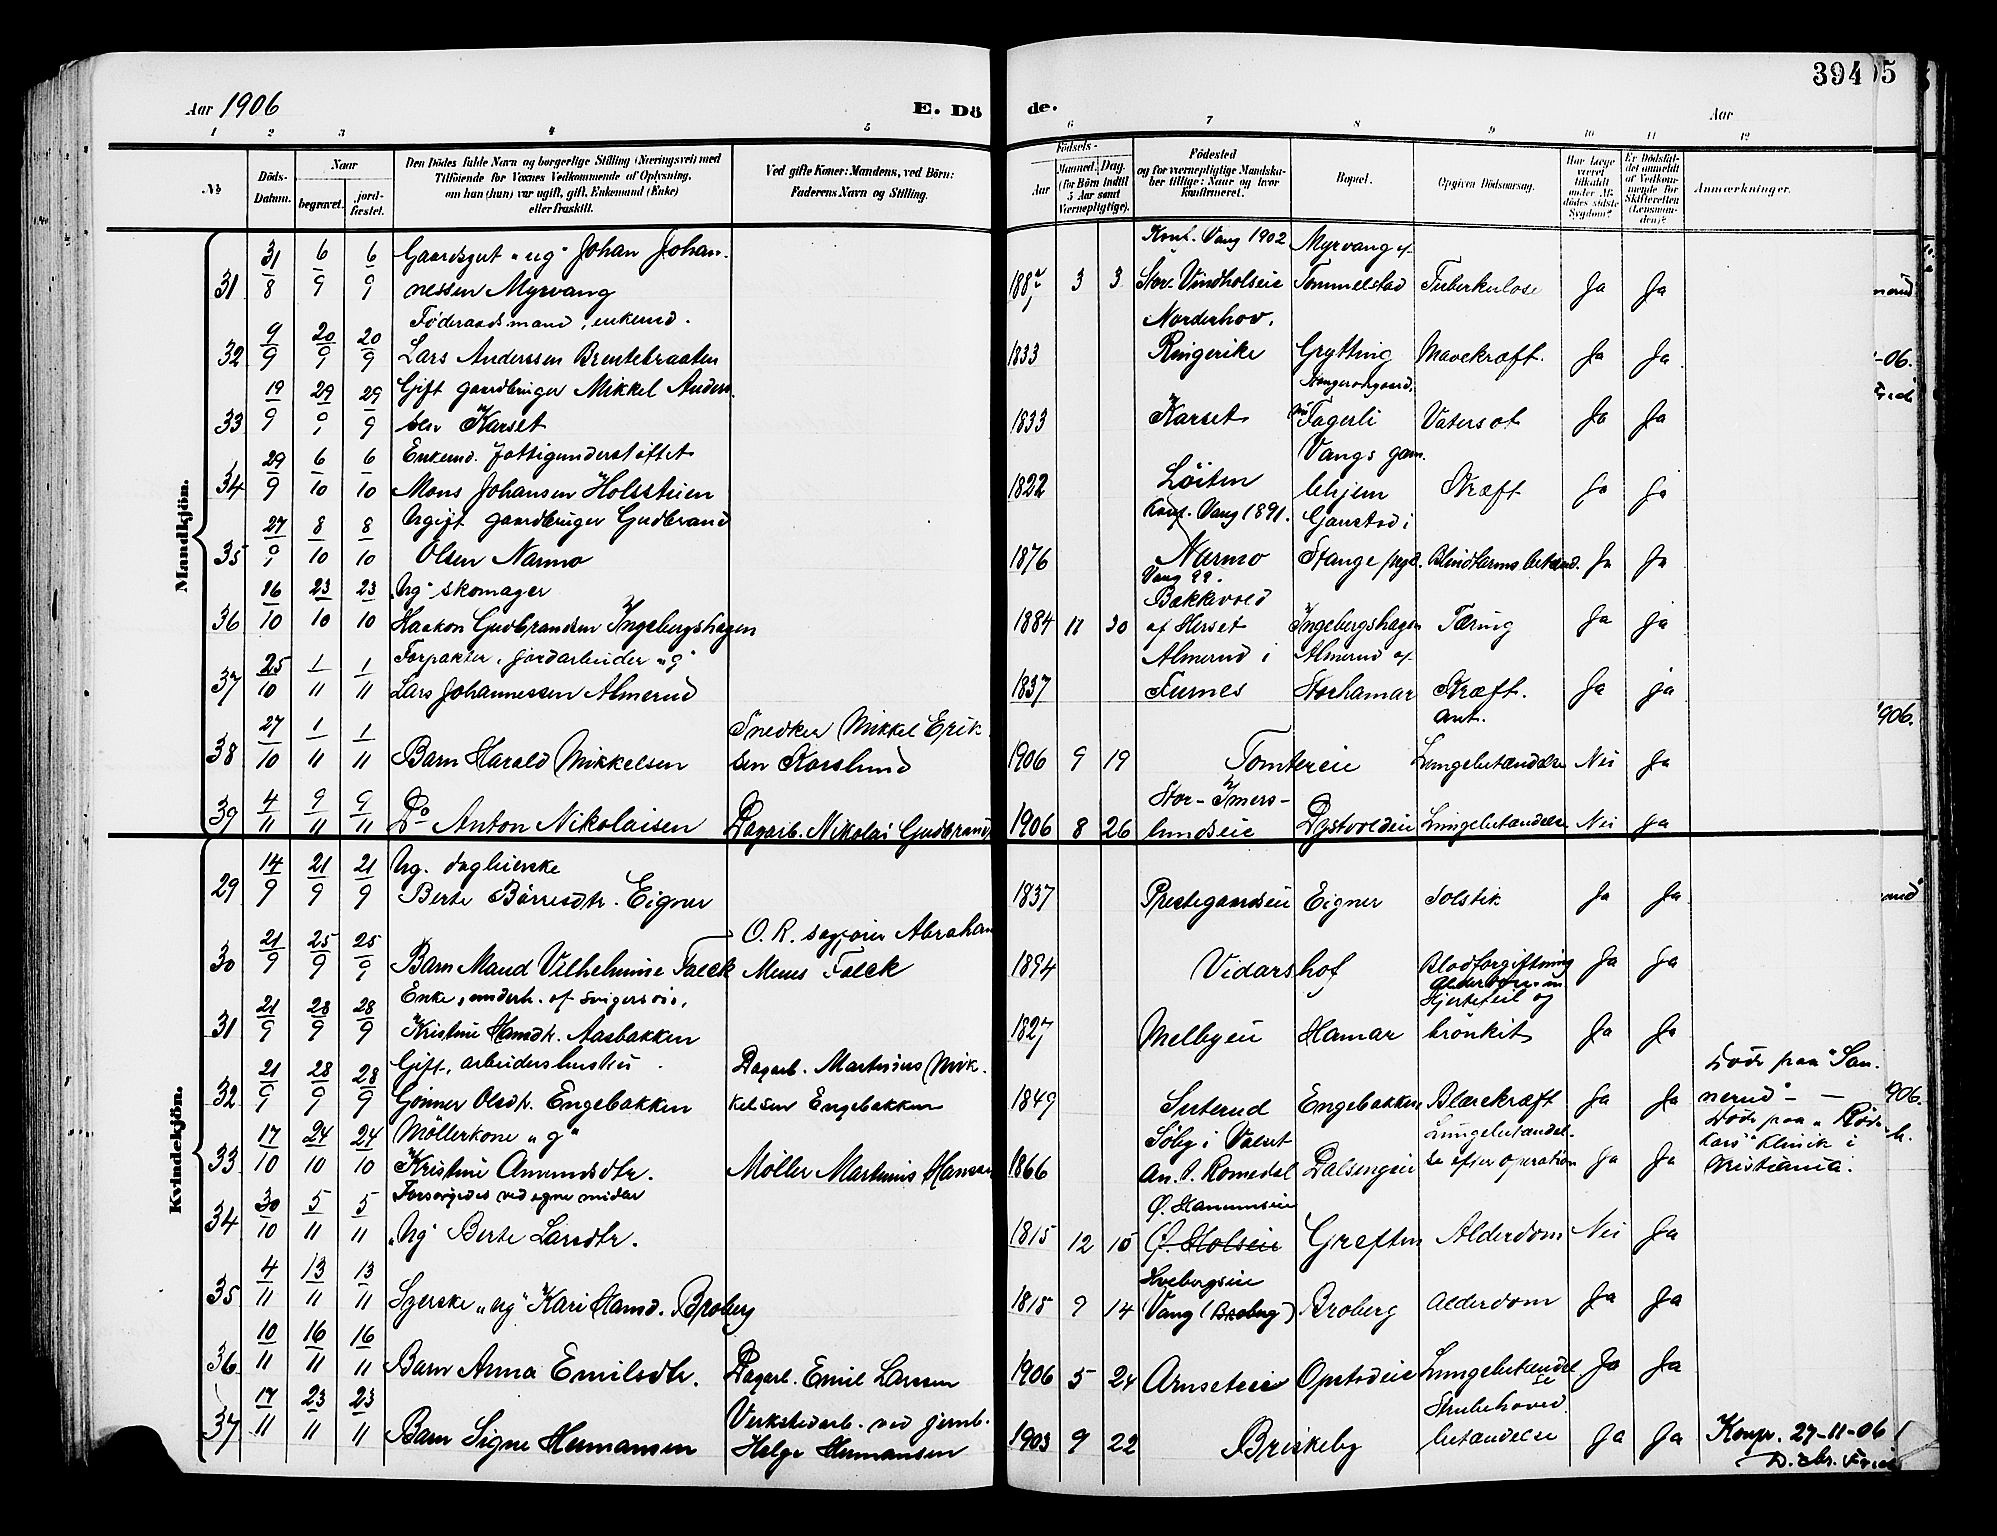 394 5
Aar 1906 E. Dö de. Aar
1 2 3 4 5 6 7 8 9 10 11 12
No
Döds-Datum.
Naar
begravet.
jord-fæstet.
Den Dödes fulde Navn og borgerlige Stilling (Næringsvei) med
Tilföiende for Voxnes Vedkommende af Oplysning,
om han (hun) var ugift, gift, Enkemand (Enke)
eller fraskilt.
Ved gifte Koner: Mandens, ved Börn:
Faderens Navn og Stilling.
Födsels-
Aar
Maaned. Dag.
(for Börn indtil
5 Aar samt
Værnepligtige).
Födested
og for værnepligtige Mandska-
ber tillige: Naar og hvor
konfirmeret.
Bopæl.
Opgiven Dödsaarsag.
Har Læge
været
tilkaldt
under Af-
dödes sidste
Sygdom?
Er Dödsfal-
det anmeldt
af Vedkom-
mende for
Skifteretten
(Lensman-
den)?
Anmærkninger.
Mandkjön.
31 31/8 6/9 6/9 Gaardsgut "ug" Johan Johan- Konf. Vang 1902 Myrvang af
nessen Myrvang 3 3 Stor-Vindholseie Tommelstad Tuberkulose Ja Ja
32 9/9 20/9 20/9 Föderaadsmand, enkemd. Norderhov,
Lars Anderssen Brentebraaten 1833 Ringerike Grytting Mavekræft. Ja Ja
33 19/9 29/9 29/9 Gift gaardbruger Mikkel Anders-
sen Karset 1833 Karset Fagerli Vatersot Ja Ja
34 29/9 6/10 6/10 Enkemd. fattigunderstöttet Vangs gam-
Mons Johansen Holssteien 1822 Löiten lehjem Kræft Ja Ja
35 27/9 8/10 8/10 Ugift gaardbruger Gudbrand Konf. Vang 1891. Gaustad i
Olsen Narmo 1876 Narmo Stange pgd. Blindtarmsbetænd. Ja Ja
36 16/10 23/10 23/10 "Ug" skomager Vang 99. Bakkevold
Haakon Gudbrandsen Ingebergshagen 1884 11 30 af Herset Ingebergshagen Tæring Ja ja
37 25/10 1/11 1/11 Forpakter, jordarbeider "g" Almerud i Almerud af
Lars Johannessen Almerud 1837 Furnes Storhamar Kræft. Ja ja
38 27/10 1/11 1/11 Snedker Mikkel Erik- ant.
Barn Harald Mikkelsen sen Korslund 1906 9 19 Tomtereie Lungebetændelse Nei Ja
39 4/11 9/11 9/11 Stor-Imers-
Do Anton Nikolaisen Dagarb. Nikolai Gudbrands 1906 8 26 lundseie Dystvoldeie Lungebetændelse Nei Ja
Kvindekjön.
29 14/9 21/9 21/9 Ug. dagleierske
Berte Börresdtr. Eigner 1837 Prestegaardseie Eigner Solstik Ja Ja
30 21/9 25/9 25/9 O. R. sagförer Abraham
Barn Maud Vilhelmine Falck Falck 1894 Vidarshof Blodforgiftning Ja Ja
31 21/9 28/9 28/9 Enke, underh. af svigersön, Hjertefeil og
Kristine Hansdtr. Aasbakken 1827 Melbyeie Hamar bronkit Ja Ja
32 21/9 28/9 28/9 Gift, arbeiderhustru Dagarb. Martinius Mik- Döde paa "San-
Gönner Olsdtr. Engebakken kelsen Engebakken 1849 Engebakken Blærekræft Ja Ja nerud"
33 17/10 24/10 24/10 Möllerkone "g" Söby i Valset Lungebetændel- Döde paa "Röde
Kristine Amundsdtr. Möller Martinius Hansen 1866 An. p. Romedal Dalsengeie se efter operation Ja Ja Kors" klinik i
Kristiania.
34 30/10 5/11 5/11 Forsörgedes ved egne midler Ö. Hanumseie
"Ug" Berte Larsdtr. 1815 12 15 Ö. Holseie Greften Alderdom Nei Ja
35 4/11 13/11 13/11
"ug" Kari Hansd. Broberg 1815 9 14 Vang (Broberg) Broberg Alderdom Ja Ja
36 10/11 16/11 16/11
Barn Anna Emilsdtr. Dagarb. Emil Larssen 1906 5 24 Arnseteie Opstadeie Lungebetændelse Ja Ja
37 17/11 23/11 23/11 Verkstedarb. ved jernb. Strubehoved-
Barn Signe Hermansen Helge Hermansen 1903 9 22 Briskeby betændelse Ja Ja Konp. 27-11-06